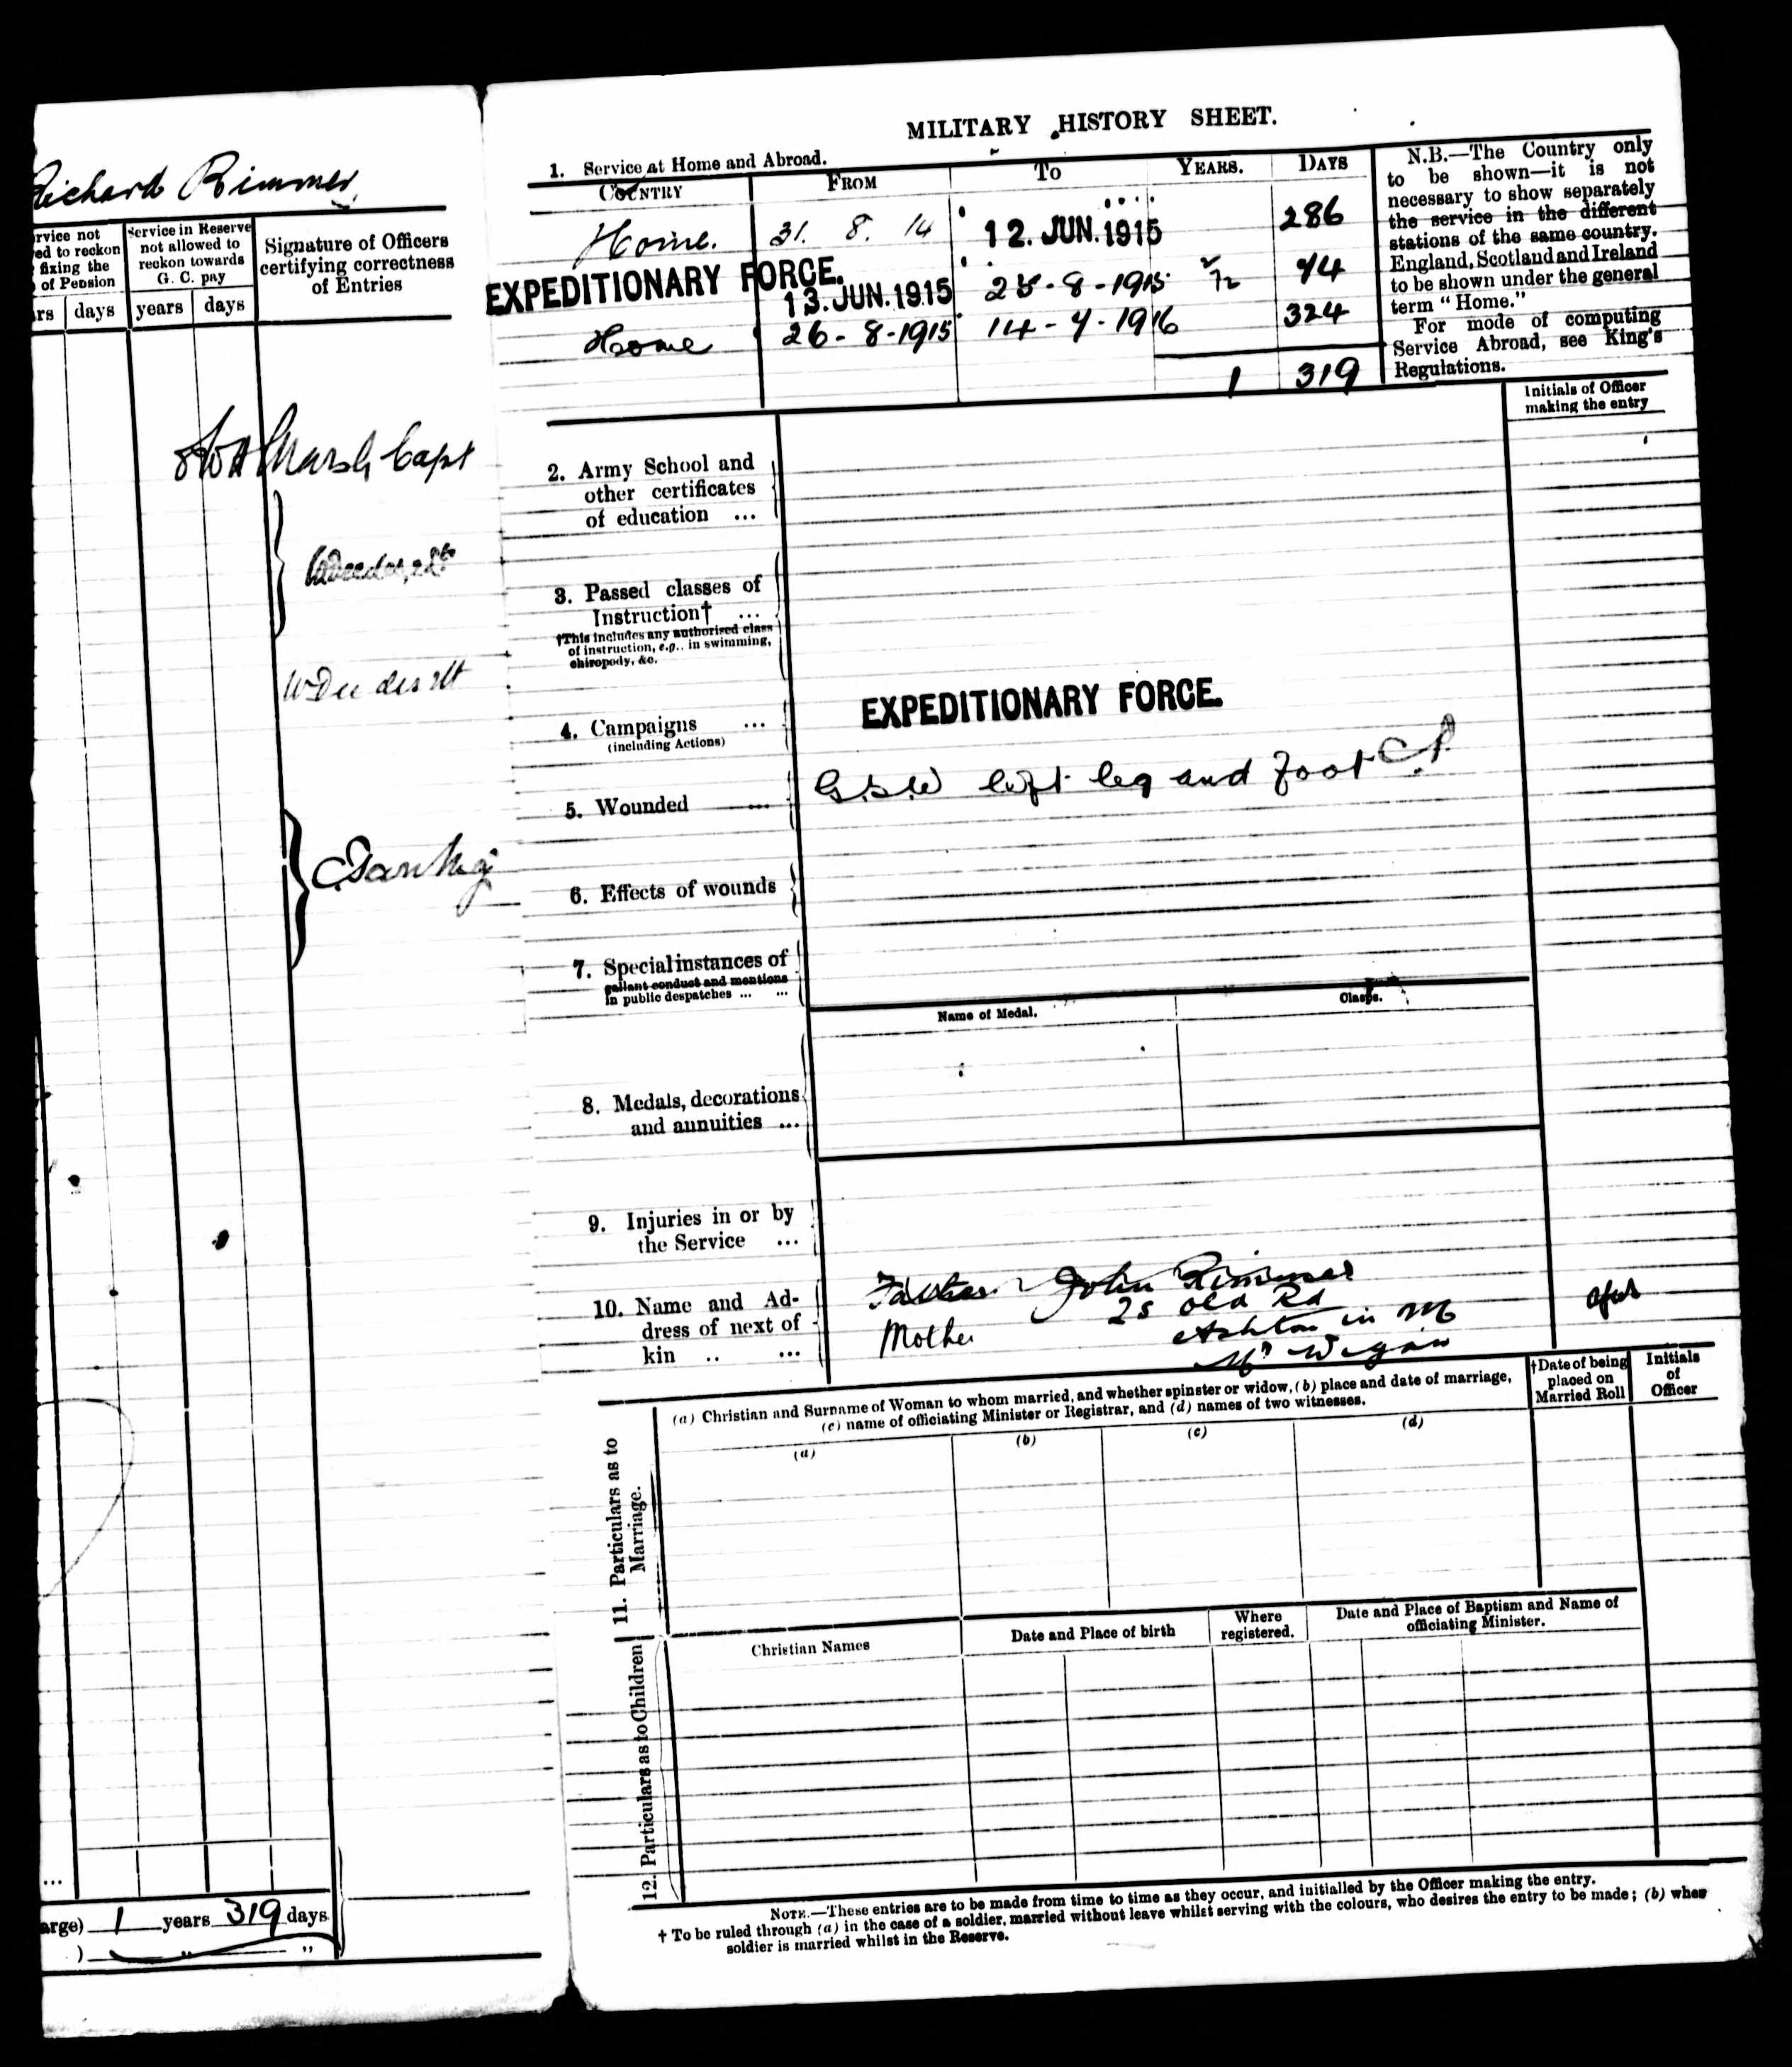 Richard Rimmer
rvice not
ed to reckon
fixing the
of Pension
Service in Reserve
not allowed to
reckon towards
G. C. pay
Signature of Officers
certifying correctness
of Entries
rs days years days
Marsh Capt
...
arge) 1 years 319 days
) " "
MILITARY HISTORY SHEET.
1. Service at Home and Abroad.
COUNTRY FROM TO YEARS. DAYS
Home. 31. 8. 14 12. JUN. 1915 286
EXPEDITIONARY FORCE.
13. JUN. 1915 25-8-1915 74
Home 26-8-1915 14-7-1916 324
1 319
N.B.—The Country only
to be shown—it is not
necessary to show separately
the service in the different
stations of the same country.
England, Scotland and Ireland
to be shown under the general
term "Home."
For mode of computing
Service Abroad, see King's
Regulations.
Initials of Officer
making the entry
2. Army School and
other certificates
of education ...
3. Passed classes of
Instruction† ...
†This includes any authorised class
of instruction, e.g., in swimming,
chiropody, &c.
4. Campaigns ...
(including Actions)
EXPEDITIONARY FORCE.
5. Wounded ... G.S.W left leg and foot
6. Effects of wounds
7. Special instances of
gallant conduct and mentions
in public despatches ... ...
Name of Medal. Clasps.
8. Medals, decorations
and annuities ...
9. Injuries in or by
the Service ...
10. Name and Ad-
dress of next of
kin .. ...
Father John Rimmer
25 Old Rd
Mother Ashton in M
Nr Wigan
11. Particulars as to
Marriage.
(a) Christian and Surname of Woman to whom married, and whether spinster or widow, (b) place and date of marriage,
(c) name of officiating Minister or Registrar, and (d) names of two witnesses.
†Date of being
placed on
Married Roll
Initials
of
Officer
(a) (b) (c) (d)
12. Particulars as to Children
Christian Names
Date and Place of birth
Where
registered.
Date and Place of Baptism and Name of
officiating Minister.
NOTE.—These entries are to be made from time to time as they occur, and initialled by the Officer making the entry.
† To be ruled through (a) in the case of a soldier, married without leave whilst serving with the colours, who desires the entry to be made; (b) when
soldier is married whilst in the Reserve.